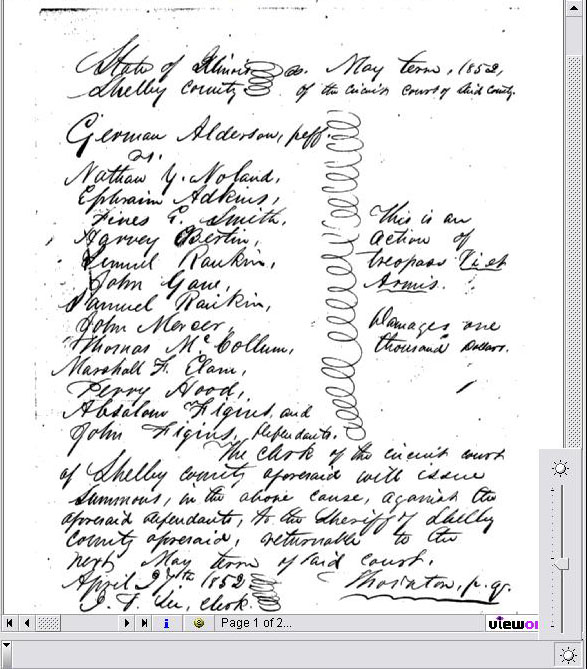 State of Illinois ss. May term, 1852,
Shelby county of the circuit court of said county.
German Alderson, peff.
vs.
Nathan Y. Noland,
Ephraim Adkins,
Fines E. Smith,
Harvey Bertin,
Lemuel Rankin,
John Gane,
Samuel Rankin,
John Mercer,
Thomas Mc Collum,
Marshall F. Elam,
Perry Hood,
Absalom Figins and
John Figins, Defendants.
This is an
action of
trespass Vi et
Armis.
Damages one
thousand Dollars.
The clerk of the circuit court
of Shelby county aforesaid will issue
summons, in the above cause, against the
aforesaid defendants, to the Sheriff of Shelby
county aforesaid, returnable to the
next May term of said court.
April 27th 1852 Thornton, p. q.
clerk.
Page 1 of 2...
viewo